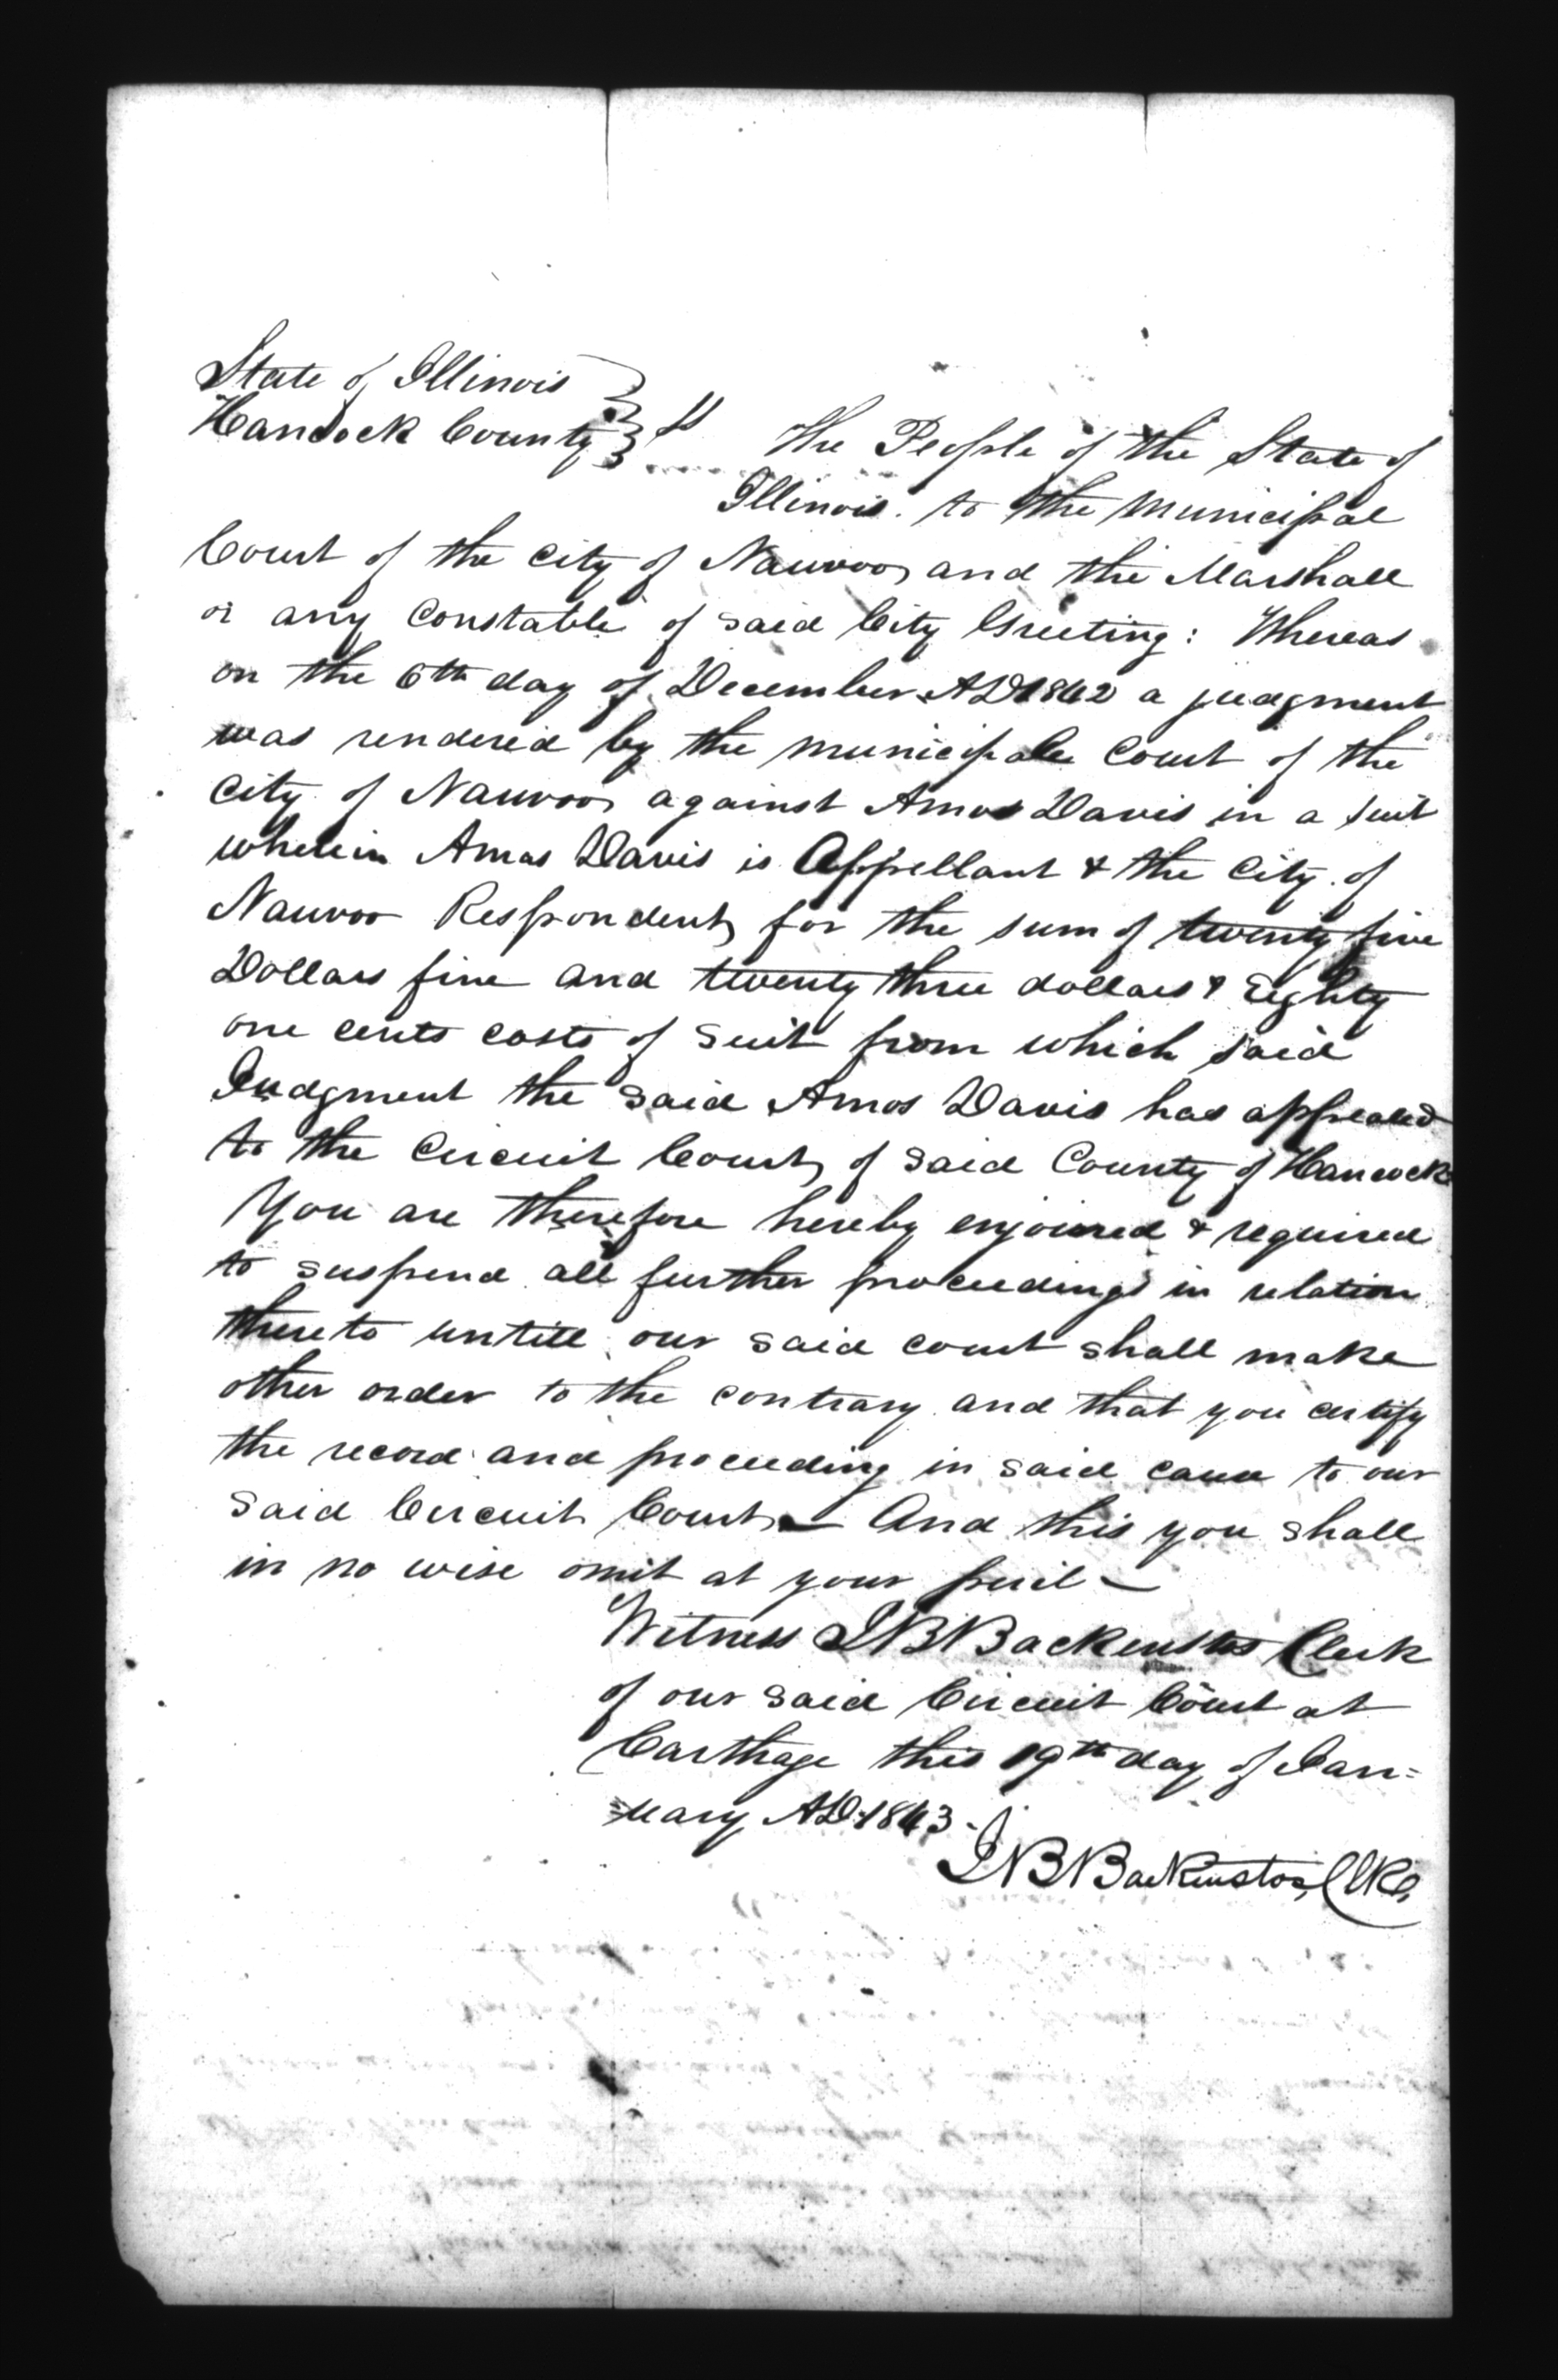 State of Illinois }
Hancock County } ss The People of the State of
Illinois. to the Municipal
Court of the City of Nauvoo and the Marshall
or any Constable of said City Greeting: Whereas
on the 6th day of December AD 1842 a judgment
was rendered by the municipale Court of the
City of Nauvoo against Amos Davis in a suit
wherein Amos Davis is Appellant & the City of
Nauvoo Respondent, for the sum of twenty five
Dollars fine and twenty three dollars & Eighty
one cents costs of suit from which said
Judgment the said Amos Davis has appealed
to the Circuit Court, of said County of Hancock
You are therefore hereby enjoined & required
to suspend all further proceedings in relation
thereto untill our said court shall make
other order to the contrary and that you certify
the record and proceeding in said cause to our
said Circuit Court — And this you shall
in no wise omit at your peril —
Witness J B Backenstos Clerk
of our said Circuit Court at
Carthage this 19th day of Jan=
=uary AD. 1843.
J B Backenstos, Clk,